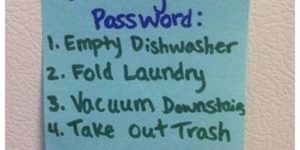 Password:
1. Empty Dishwasher
2. Fold Laundry
3. Vacuum Downstairs
4. Take Out Trash